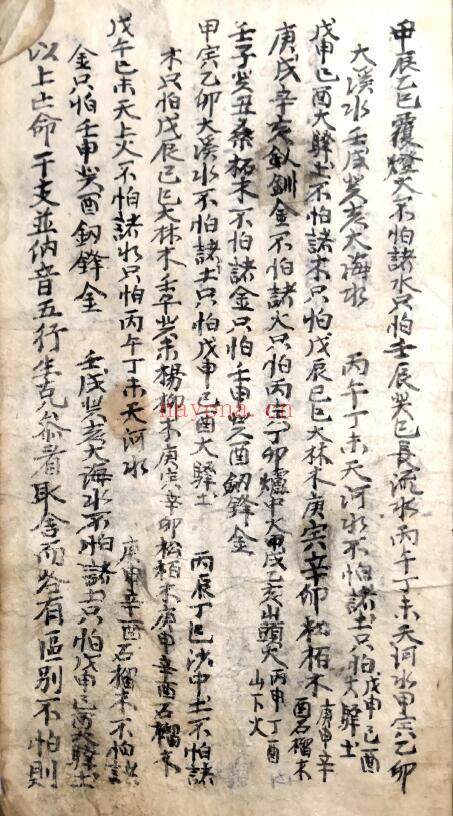 甲辰乙巳覆燈火不怕諸水只怕壬辰癸巳長流水丙午丁未天河水甲寅乙卯
大溪水壬戌癸亥大海水 丙午丁未天河水不怕諸土只怕戊申己酉大驛土
戊申己酉大驛土不怕諸木只怕戊辰己巳大林木庚寅辛卯松柏木庚申辛酉石榴木
庚戌辛亥釵釧金不怕諸火只怕丙寅丁卯爐中火甲戌乙亥山頭火丙申丁酉山下火
壬子癸丑桑柘木不怕諸金只怕壬申癸酉劒鋒金
甲寅乙卯大溪水不怕諸土只怕戊申己酉大驛土 丙辰丁巳沙中土不怕諸
木只怕戊辰己巳大林木壬午癸未楊柳木庚寅辛卯松柏木庚申辛酉石榴木
戊午己未天上火不怕諸水只怕丙午丁未天河水 庚申辛酉石榴木不怕諸
金只怕壬申癸酉劒鋒金 壬戌癸亥大海水不怕諸土只怕戊申己酉大驛土
以上亡命干支並納音五行生克參看取舍而各有區別不怕則
nayona.cn